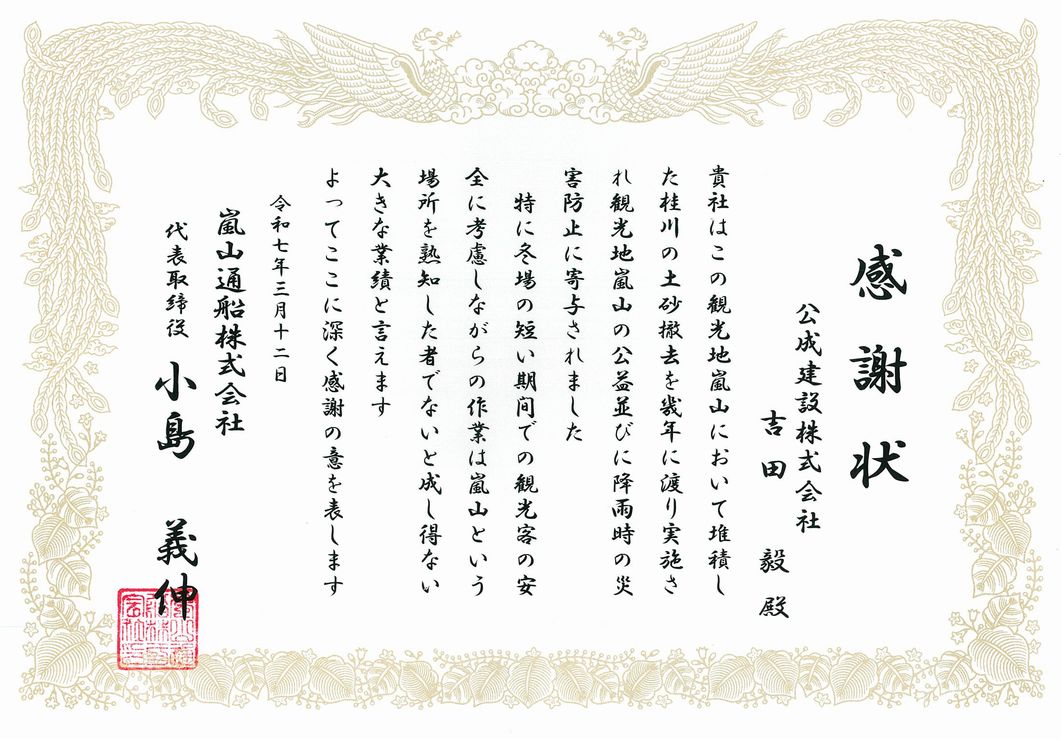 感謝状
公成建設株式会社
吉田 毅 殿
貴社はこの観光地嵐山において堆積し
た桂川の土砂撤去を幾年に渡り実施さ
れ観光地嵐山の公益並びに降雨時の災
害防止に寄与されました
特に冬場の短い期间での観光客の安
全に考慮しながらの作業は嵐山という
場所を熟知した者でないと成し得ない
大きな業績と言えます
よってここに深く感謝の意を表します
令和七年三月十二日
嵐山通船株式会社
代表取締役 小島 義伸